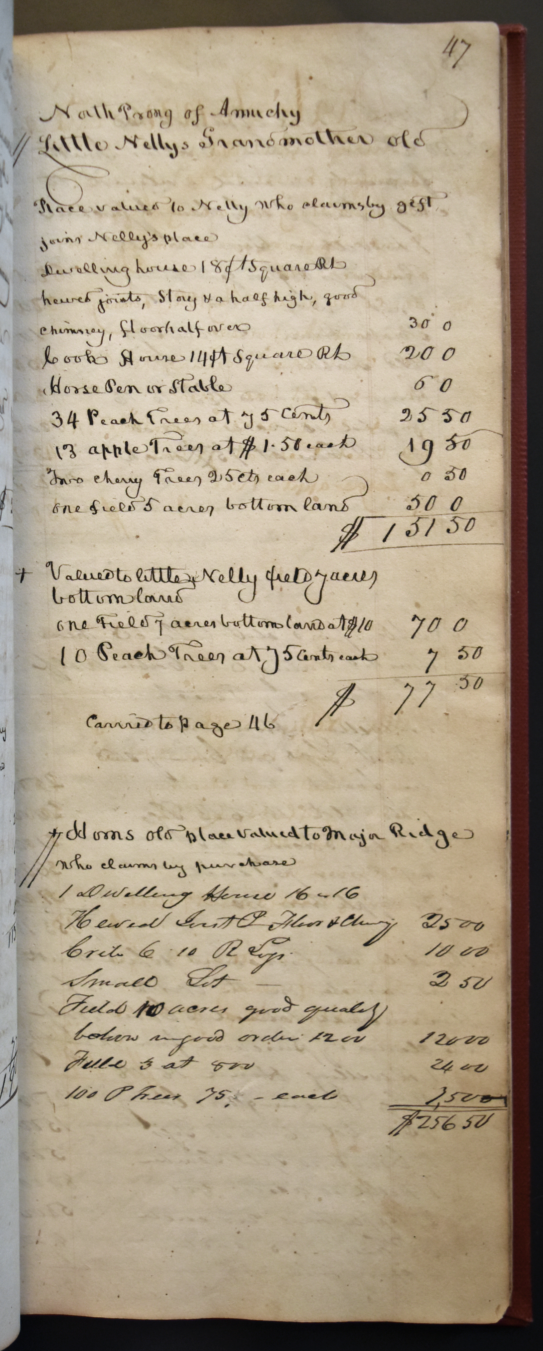 47
North Prong of Amuchy
Little Nellys Grandmother old
Place valued to Nelly who claims by gift
joins Nelly's place
Dwelling house 18 ft Square Rh
hewed joists, Story & a half high, good
chimney, floor half over 30 0
Cook House 14 ft Square Rh 20 0
Horse Pen or Stable 6 0
34 Peach Trees at 75 Cents 25 50
13 apple Trees at $1.50 each 19 50
Two cherry Trees 25 cts each 0 50
one field 5 acres bottom land 50 0
$ 151 50
+ Valued to little Nelly field 7 acres
bottom land
one Field 7 acres bottom land at $10 70 0
10 Peach Trees at 75 Cents each 7 50
$ 77 50
Carried to page 46
Horns old place valued to Major Ridge
who claims by purchase
1 Dwelling House 16 16
Hewed Joist P. Floor & Chimy 25 00
Crib 6 10 R Logs 10 00
Small Lot — 2 50
Field 10 acres good quality
below in good order 12 00 120 00
Field 3 at 800 24 00
100 P Trees 75 - each 7,500
$256 50